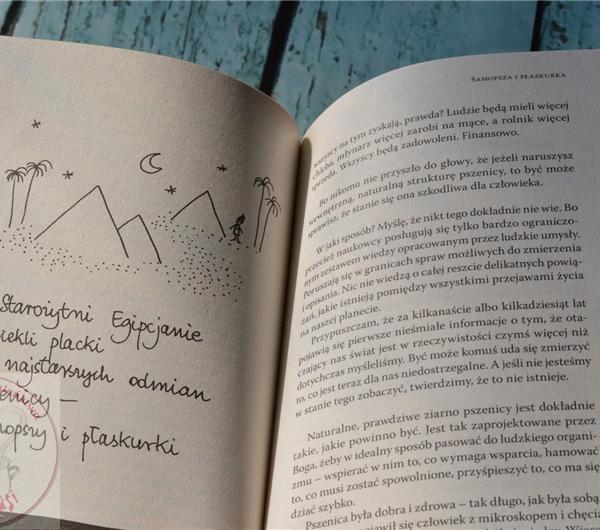 Starożytni Egipcjanie
piekli placki
najstarszych odmian
pszenicy —
samopszy i płaskurki
SAMOPSZA I PŁASKURKA
wszyscy na tym zyskają, prawda? Ludzie będą mieli więcej
chleba, młynarz więcej zarobi na mące, a rolnik więcej
sprzeda. Wszyscy będą zadowoleni. Finansowo.
Bo nikomu nie przyszło do głowy, że jeżeli naruszysz
wewnętrzną, naturalną strukturę pszenicy, to być może
sprawisz, że stanie się ona szkodliwa dla człowieka.
W jaki sposób? Myślę, że nikt tego dokładnie nie wie. Bo
przecież naukowcy posługują się tylko bardzo ograniczo-
nym zestawem wiedzy opracowanym przez ludzkie umysły.
Poruszają się w granicach spraw możliwych do zmierzenia
i opisania. Nic nie wiedzą o całej reszcie delikatnych powią-
zań, jakie istnieją pomiędzy wszystkimi przejawami życia
na naszej planecie.
Przypuszczam, że za kilkanaście albo kilkadziesiąt lat
pojawią się pierwsze nieśmiałe informacje o tym, że ota-
czający nas świat jest w rzeczywistości czymś więcej niż
dotychczas myśleliśmy. Być może komuś uda się zmierzyć
to, co jest teraz dla nas niedostrzegalne. A jeśli nie jesteśmy
w stanie tego zobaczyć, twierdzimy, że to nie istnieje.
Naturalne, prawdziwe ziarno pszenicy jest dokładnie
takie, jakie powinno być. Jest tak zaprojektowane przez
Boga, żeby w idealny sposób pasować do ludzkiego organi-
zmu – wspierać w nim to, co wymaga wsparcia, hamować
to, co musi zostać spowolnione, przyśpieszyć to, co ma się
dziać szybko.
Pszenica była dobra i zdrowa – tak długo, jak była sobą
pojawił się człowiek z mikroskopem i chęcią